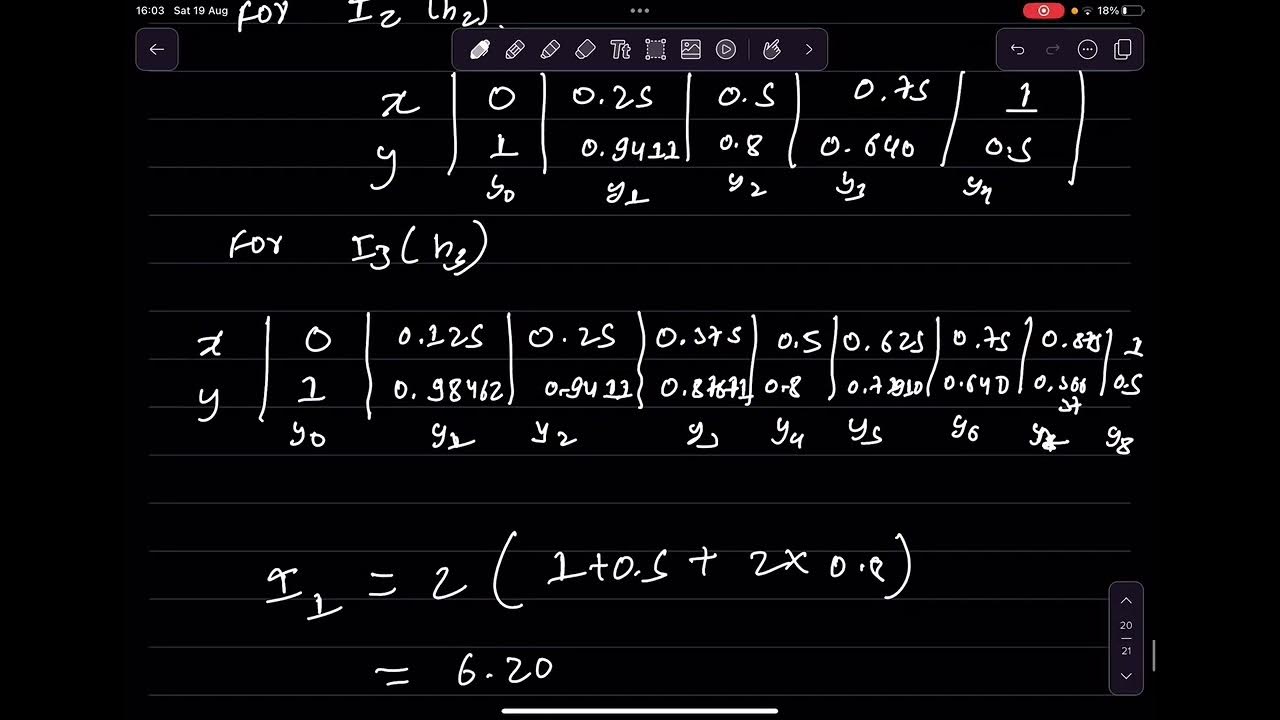 16:03 Sat 19 Aug
18%
For I2 (h2).
Tt
x 0 0.25 0.5 0.75 1
y 1 0.9411 0.8 0.640 0.5
y0 y1 y2 y3 y4
For I3 (h3)
x 0 0.125 0.25 0.375 0.5 0.625 0.75 0.875 1
y 1 0.98462 0.9411 0.87671 0.8 0.640 0.5
y0 y1 y2 y3 y4 y5 y6 y8
I1 = 2 ( 1+0.5 + 2× 0.8 )
= 6.20
20
21